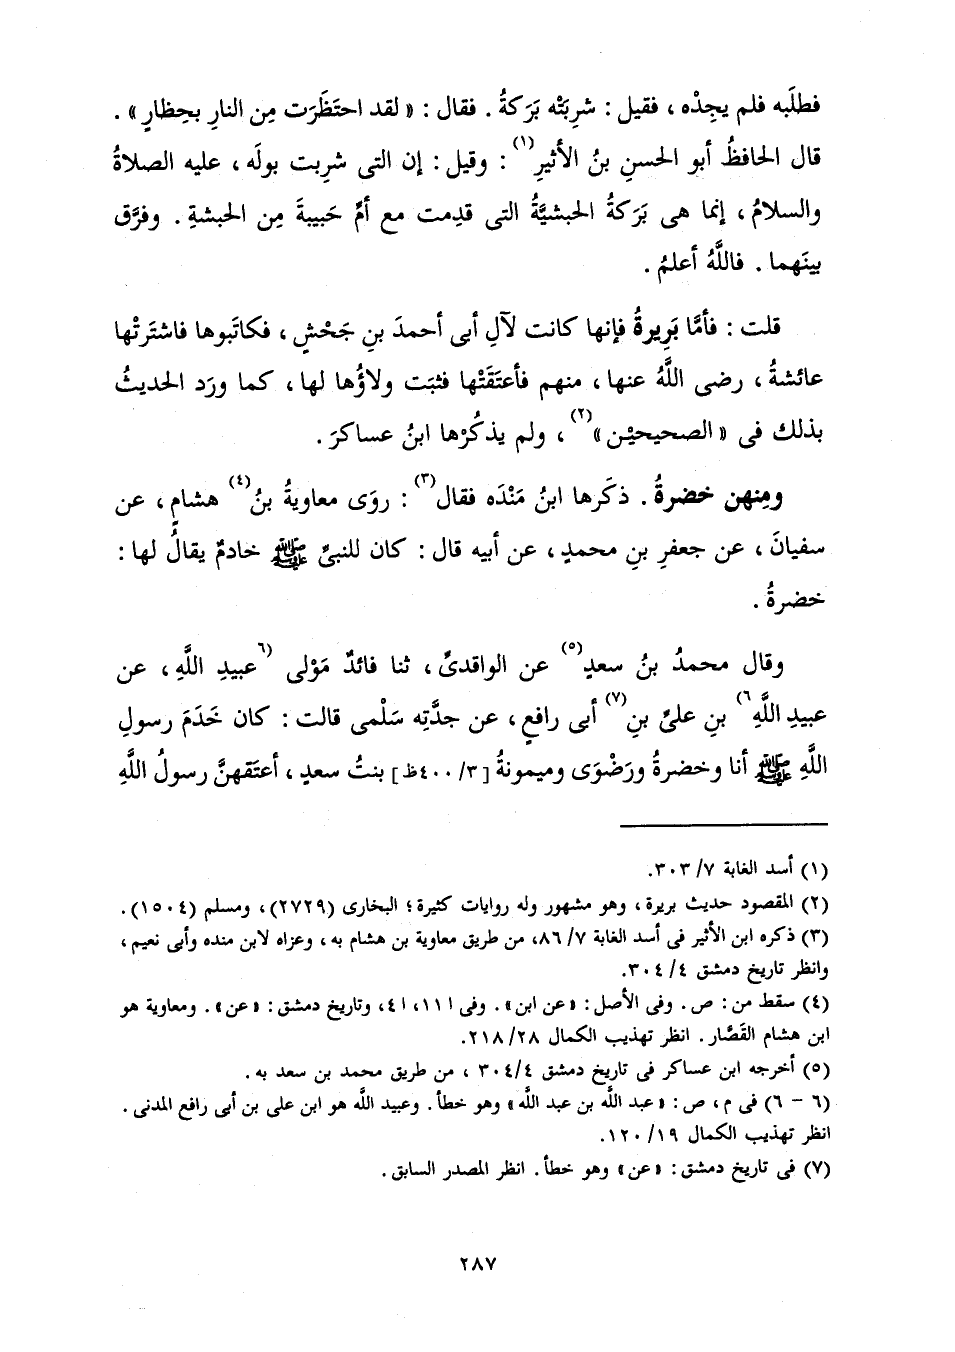 فطلَبه فلم يجِدْه ، فقيل : شرِبَتْه بَرَكةُ . فقال : « لقد احتَظَرَت مِن النارِ بحِظارٍ » .
قال الحافظُ أبو الحسنِ بنُ الأثيرِ(١) : وقيل : إن التى شرِبت بولَه ، عليه الصلاةُ
والسلامُ ، إنما هى بَرَكةُ الحبشيَّةُ التى قدِمت مع أمِّ حَبيبةَ مِن الحبشةِ . وفرَّق
بينَهما . فاللَّهُ أعلمُ .
قلت : فأمَّا بَرِيرةُ فإنها كانت لآلِ أبى أحمدَ بنِ جَحْشٍ ، فكاتَبوها فاشتَرتْها
عائشةُ ، رضى اللَّهُ عنها ، منهم فأعتَقَتْها فثبَت ولاؤُها لها ، كما ورَد الحديثُ
بذلك فى « الصحيحيْن »(٢) ، ولم يذكُرْها ابنُ عساكرَ .
ومِنهن خضرةُ . ذكَرها ابنُ مَنْدَه فقال(٣) : روَى معاويةُ بنُ(٤) هشامٍ ، عن
سفيانَ ، عن جعفرِ بنِ محمدٍ ، عن أبيه قال : كان للنبىِّ ﷺ خادمٌ يقالُ لها :
خضرةُ .
وقال محمدُ بنُ سعدٍ(٥) عن الواقدىِّ ، ثنا فائدٌ مَوْلى (٦عبيدِ اللَّهِ ، عن
عبيدِ اللَّهِ٦) بنِ علىِّ بنِ(٧) أبى رافعٍ ، عن جدَّتِه سَلْمى قالت : كان خَدَمَ رسولِ
اللَّهِ ﷺ أنا وخضرةُ ورَضْوَى وميمونةُ [٣/ ٤٠٠ظ] بنتُ سعدٍ ، أعتَقهنَّ رسولُ اللَّهِ
(١) أسد الغابة ٧/ ٣٠٣.
(٢) المقصود حديث بريرة ، وهو مشهور وله روايات كثيرة؛ البخارى (٢٧٢٩) ، ومسلم (١٥٠٤).
(٣) ذكره ابن الأثير فى أسد الغابة ٧/ ٨٦، من طريق معاوية بن هشام به ، وعزاه لابن منده وأبى نعيم ،
وانظر تاريخ دمشق ٤/ ٣٠٤.
(٤) سقط من : ص . وفى الأصل : « عن ابن » . وفى ا ١١، ا ٤، وتاريخ دمشق : « عن » . ومعاوية هو
ابن هشام القَصَّار . انظر تهذيب الكمال ٢٨/ ٢١٨.
(٥) أخرجه ابن عساكر فى تاريخ دمشق ٤/ ٣٠٤ ، من طريق محمد بن سعد به .
(٦ - ٦) فى م ، ص : « عبد اللَّه بن عبد اللَّه » وهو خطأ . وعبيد اللَّه هو ابن على بن أبى رافع المدنى .
انظر تهذيب الكمال ١٩/ ١٢٠.
(٧) فى تاريخ دمشق : « عن » وهو خطأ . انظر المصدر السابق .
٢٨٧